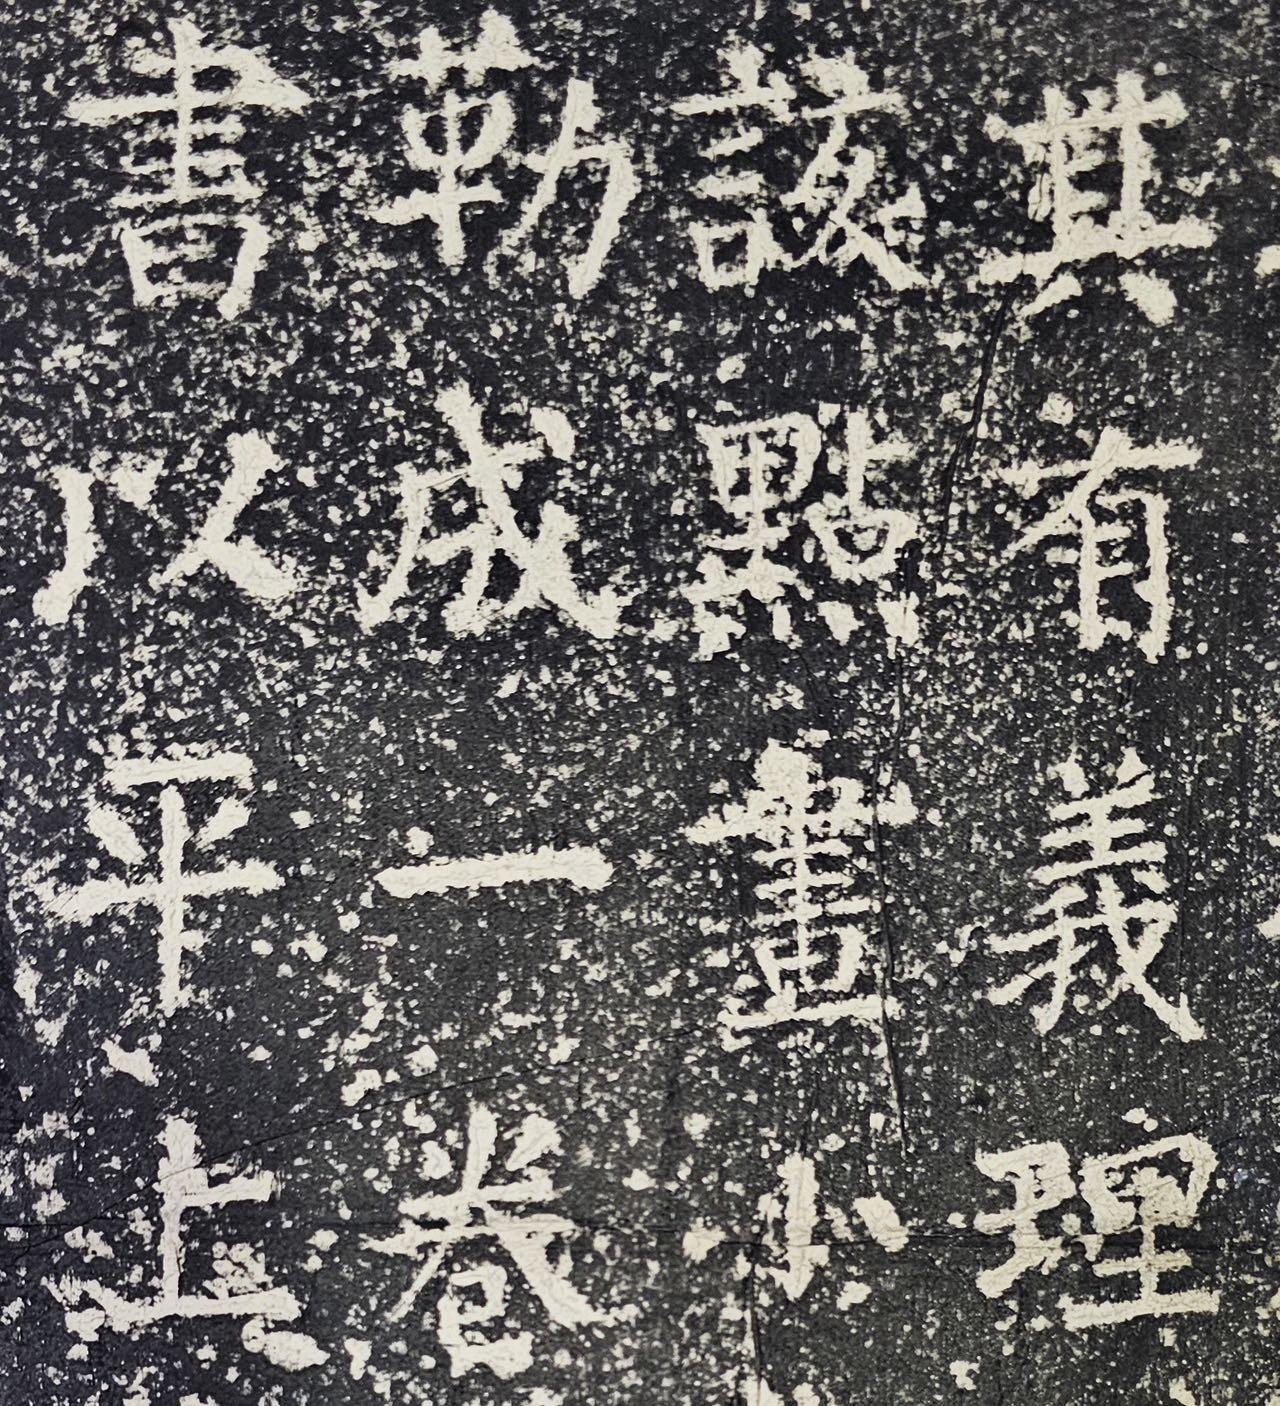 其有義理
該點畫小
勒成一卷
書以平上